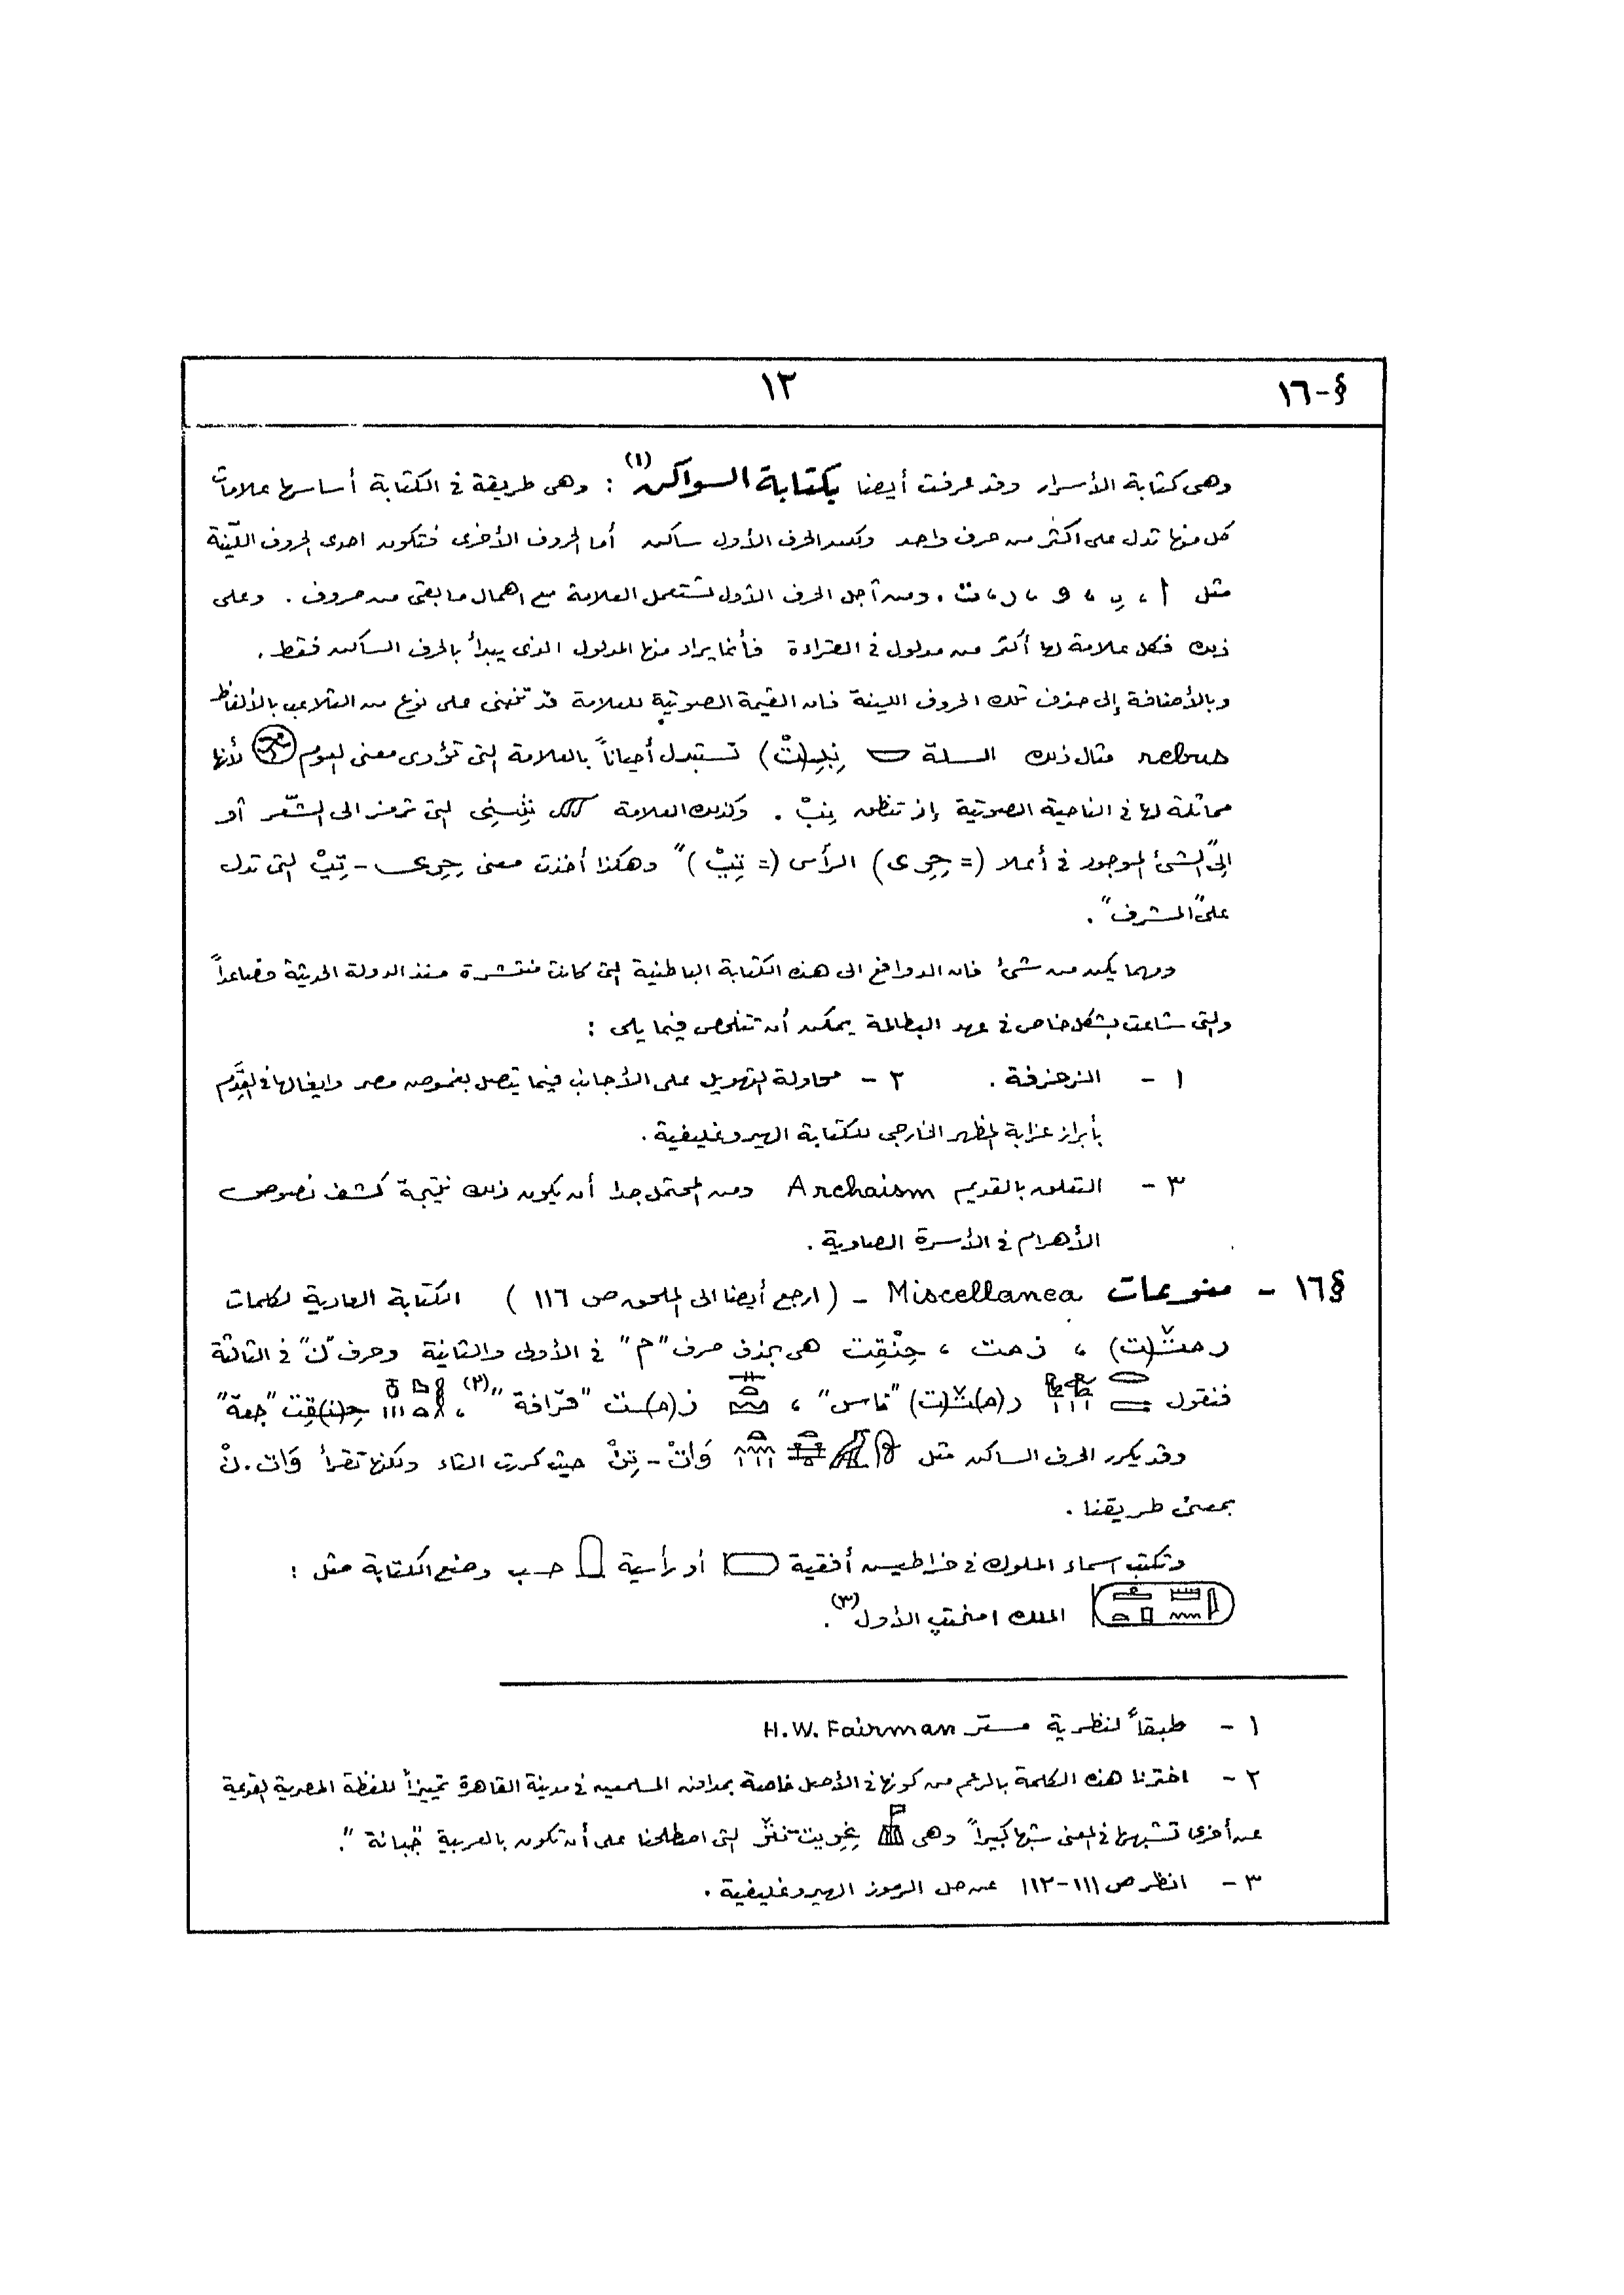 §-١٦
١٣
وهى كتابة الأسرار وقد عرفت أيضا بكتابة السواكن (١) : وهى طريقة فى الكتابة أساسها علامات
كل منها تدل على اكثر من حرف واحد الحرف الأول ساكن أما الحروف الأخرى فتكون احدى الحروف الليّنة
مثل أ ، ى ، و ، ر ، ت . ومن أجل الحرف الأول تستعمل العلامة مع اهمال ما بقى من حروف . وعلى
ذلك فكل علامة لها أكثر من مدلول فى القراءة فأنما يراد منها المدلول الذى يبدأ بالحرف الساكن فقط .
وبالأضافة إلى حذف تلك الحروف اللينة فان القيمة الصوتية للعلامة قد تنبنى على نوع من التلاعب بالألفاظ
rebus مثال ذلك السلة نِبِ(تْ) تستبدل أحياناً بالعلامة التى تؤدى معنى اليوم لأنها
مماثلة لها فى الناحية الصوتية إذ تنطق نِبْ . وكذلك العلامة التى ترمز الى الشَعر أو
الى "الشئ الموجود فى أعلا (= حِرِى) الرأس (= تِبْ)" وهكذا أخذت معنى حِرِى - تِبْ التى تدل
على "المشرف" .
ومهما يكن من شئ فان الدوافع الى هذه الكتابة الباطنية التى كانت منتشرة منذ الدولة الحديثة فصاعداً
والتى شاعت بشكل خاص فى عهد البطالمة يمكن أن تتلخص فيما يلى :
١ - الزخرفة . ٢ - محاولة التهويل على الأجانب فيما يتصل بغموض مصر وايغالها فى القِدَم
بأبراز غرابة المظهر الخارجى للكتابة الهيروغليفية .
٣ - التعلق بالقديم Archaism ومن المحتمل جدا أن يكون ذلك نتيجة كشف نصوص
الأهرام فى الأسرة الصاوية .
§١٦ - منوعات Miscellanea - (ارجع أيضا الى الملحق ص ١١٦) الكتابة العادية لكلمات
رمث(ت) ، زمت ، حِنْقِت هى بحذف حرف "م" فى الأولى والثانية وحرف "ن" فى الثالثة
فنقول ر(م)ث(ت) "ناس" ، ز(م)ت "قرّافة" (٢) ، حِ(نْ)قِت "جعة"
وقد يكرر الحرف الساكن مثل وَاتْ - تِنْ حيث كررت التاء ولكنها تقرأ وَات . نْ
بمعنى طريقنا .
وتكتب اسماء الملوك فى خراطيش أفقية أو رأسية حسب وضع الكتابة مثل :
الملك امنحتب الأول (٣) .
١ - طبقاً لنظرية مستر H.W. Fairman
٢ - اخترنا هذه الكلمة بالرغم من كونها فى الأصل خاصة بمدافن المسلمين فى مدينة القاهرة تمييزاً للفظة المصرية القديمة
عن أخرى تشبهها فى المعنى شبها كبيراً وهى التى اصطلحنا على أن تكون بالعربية "جبانة" .
٣ - انظر ص ١١١-١١٢ عن حل الرموز الهيروغليفية .